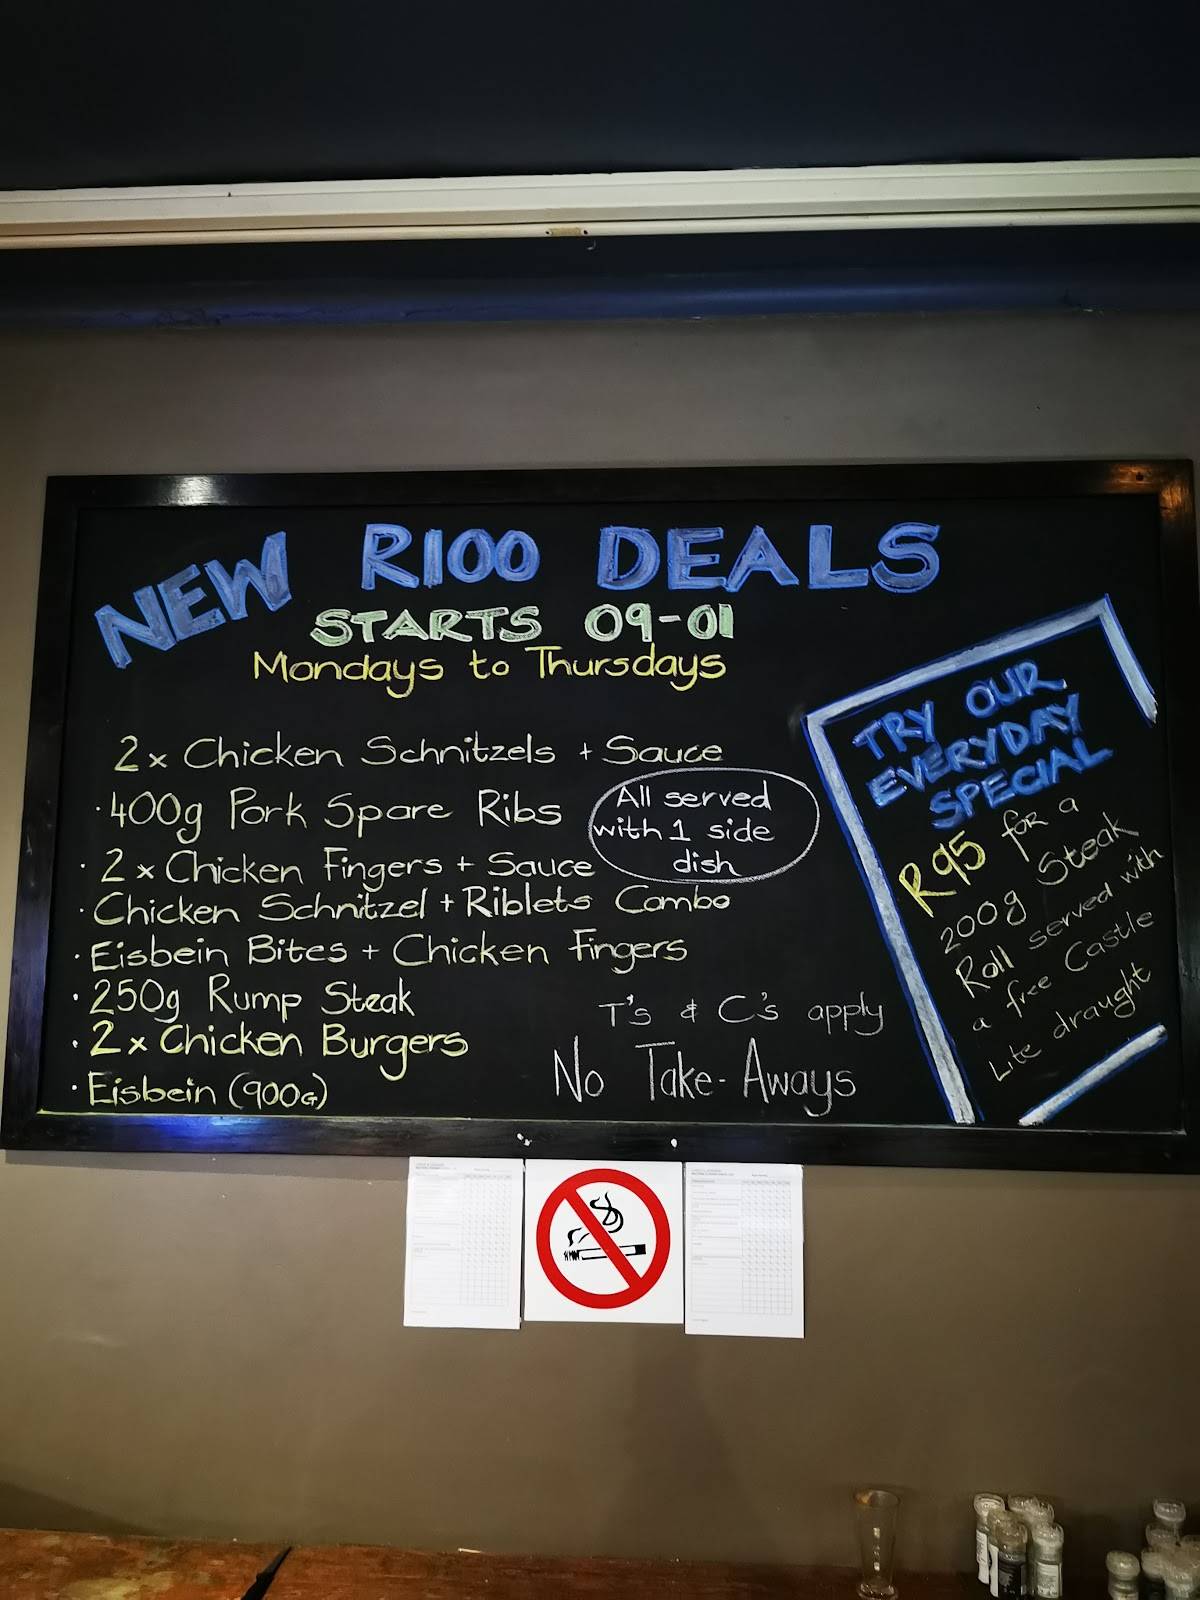 NEW R100 DEALS
STARTS 09-01
Mondays to Thursdays
2x Chicken Schnitzels + Sauce
· 400g Pork Spare Ribs
· 2x Chicken Fingers + Sauce
· Chicken Schnitzel + Riblets Combo
· Eisbein Bites + Chicken Fingers
· 250g Rump Steak
· 2x Chicken Burgers
· Eisbein (900G)
All served
with 1 side
dish
T's & C's apply
No Take-Aways
TRY OUR
EVERYDAY
SPECIAL
R95 for a
200g Steak
Roll served with
a free Castle
Lite draught